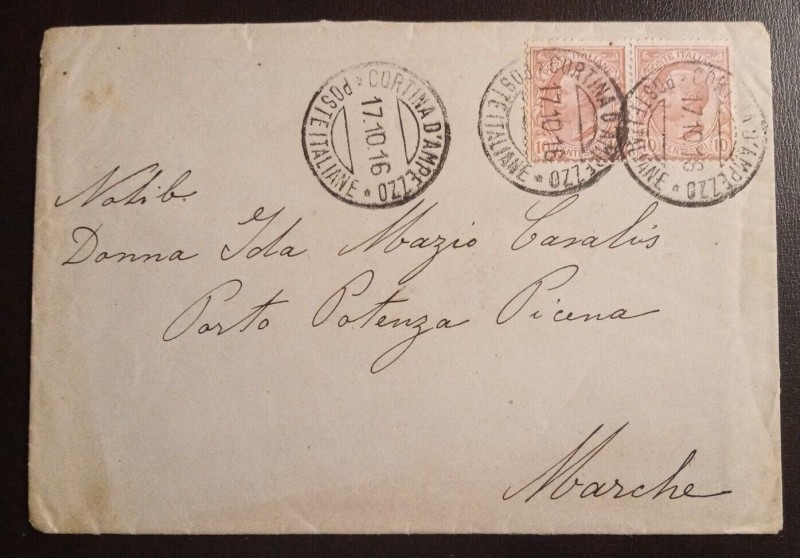 CORTINA D'AMPEZZO * POSTE ITALIANE *
17.10.16
CORTINA D'AMPEZZO * POSTE ITALIANE
17.10.16
CORTINA D'AMPEZZO * POSTE ITALIANE *
17.10.16
POSTE ITALIANE
10
POSTE ITALIANE
10 10
Nobib.
Donna Ida Mazio Casalis
Porto Potenza Picena
Marche